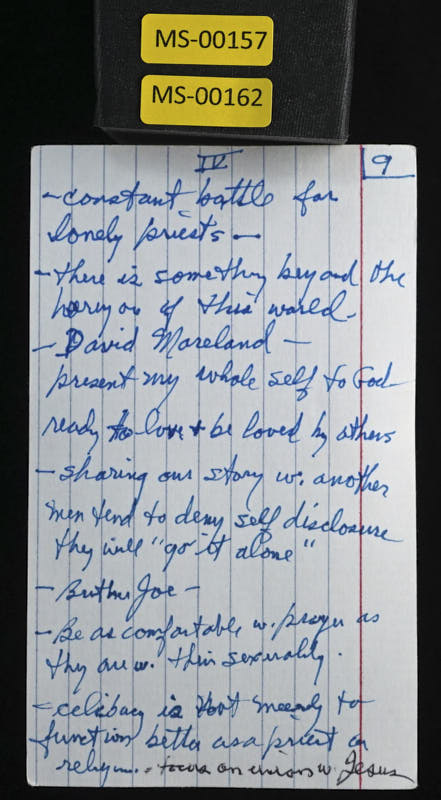 MS-00157
MS-00162
IV
9
- constant battle for
lonely priests -
- there is something beyond the
horizon of this world -
- David Moreland -
present my whole self to God
ready to love + be loved by others
- sharing our story w. another
men tend to deny self disclosure
they will "go it alone"
- Brother Joe -
- Be as comfortable w. prayer as
they are w. their sexuality.
- celibacy is not merely to
function better as a priest or
- focus on union w. Jesus